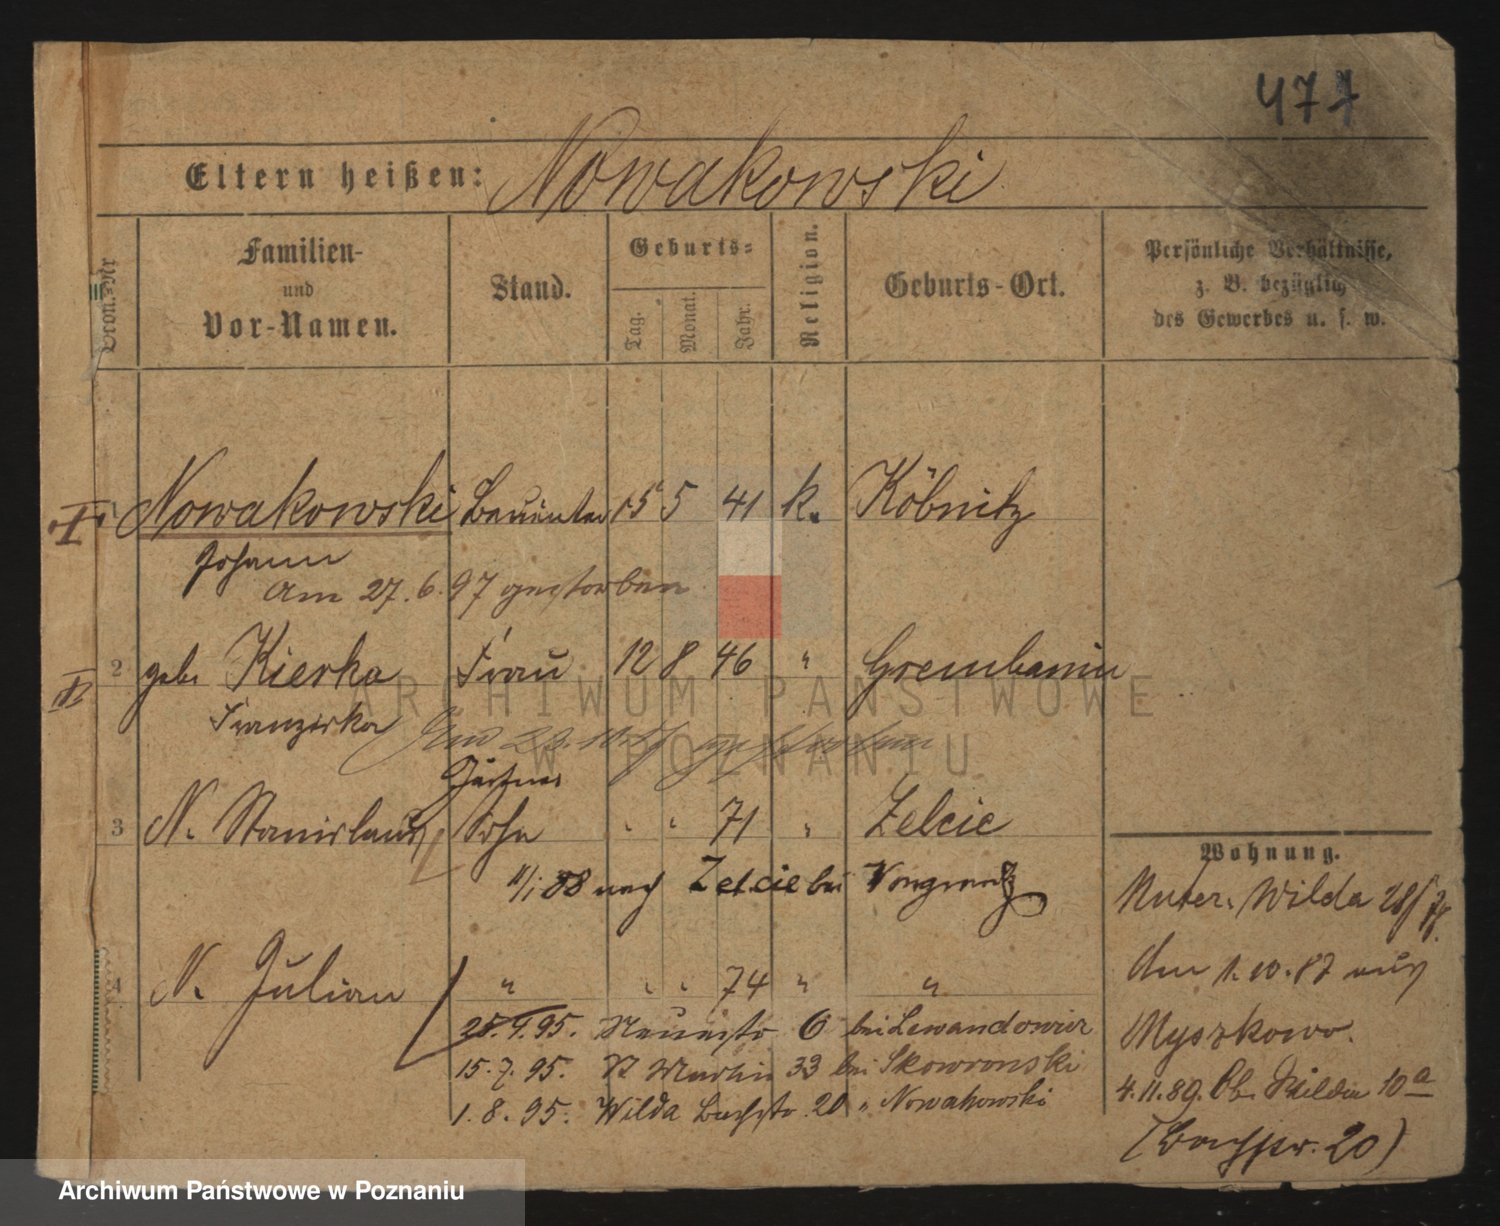 477
Eltern heißen: Nowakowski
Ordn.-Nr
Familien- und Vor-Namen.
Stand.
Geburts-
Tag. Monat. Jahr.
Religion.
Geburts-Ort.
Persönliche Verhältnisse, z. B. bezüglich des Gewerbes u. s. w.
I Nowakowski 15 5 41 k. Köbnitz
Johann
Am 27. 6. 97 gestorben
II 2 geb. Kierka Frau 12 8 46 " Grembanin
Franziska
gestorben
Gärtner
3 N. Stanislaus Sohn " " 71 " Zelcie
88 nach Zelcie bei
4 N. Julian " " " 74 " "
25. 4. 95. 6 bei Lewandowicz
15. 7. 95. St Martin 33 bei Skowronski
1. 8. 95. Wilda Bachstr 20 " Nowakowski
Wohnung.
Unter. Wilda 28/
Am 1. 10. 87 aus
Myszkowo.
4. 11. 89. Ob. Wilda 10a
(Bachstr. 20)
ARCHIWUM PAŃSTWOWE
W POZNANIU
Archiwum Państwowe w Poznaniu